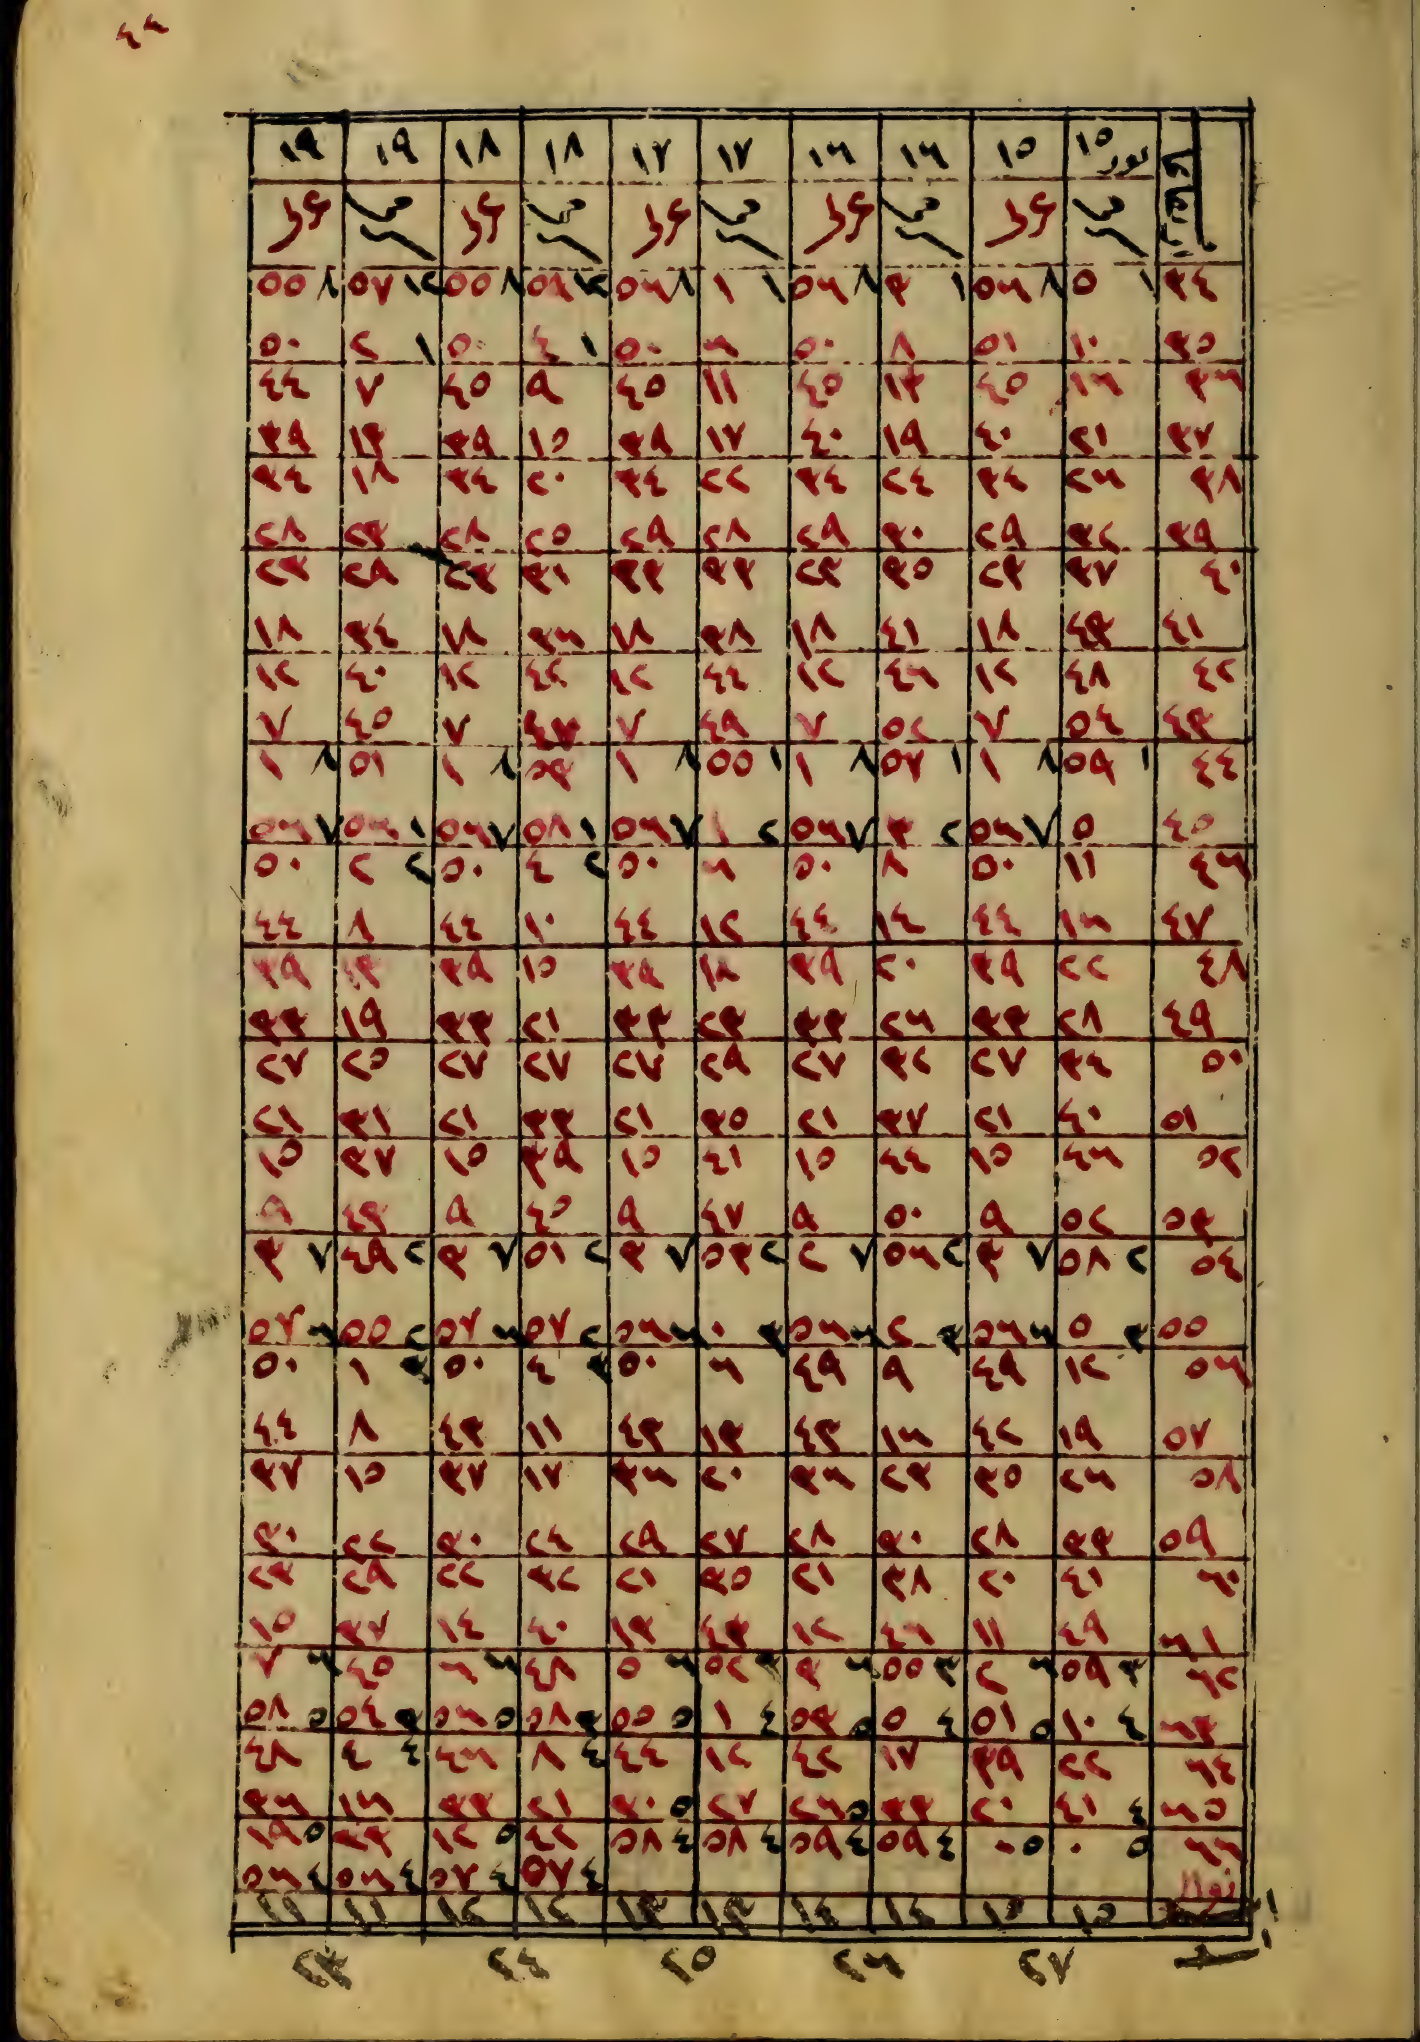 ١٥ ثور ١٥ ١٦ ١٦ ١٧ ١٧ ١٨ ١٨ ١٩ ١٩
٣٤ ١ ٥ ٨ ٥٦ ١ ٣ ٨ ٥٦ ١ ١ ٨ ٥٦ ١٢ ٥٨ ٨ ٥٥ ١٢ ٥٧ ٨ ٥٥
٣٥ ١٠ ٥١ ٨ ٥٠ ٦ ٥٠ ١ ٤ ٥٠ ١ ٢ ٥٠
٣٦ ١٦ ٤٥ ١٣ ٤٥ ١١ ٤٥ ٩ ٤٥ ٧ ٤٤
٣٧ ٢١ ٤٠ ١٩ ٤٠ ١٧ ٣٩ ١٥ ٣٩ ١٣ ٣٩
٣٨ ٢٦ ٣٤ ٢٤ ٣٤ ٢٢ ٣٤ ٢٠ ٣٤ ١٨ ٣٤
٣٩ ٣٢ ٢٩ ٣٠ ٢٩ ٢٨ ٢٩ ٢٥ ٢٨ ٢٣ ٢٨
٤٠ ٣٧ ٢٣ ٣٥ ٢٣ ٣٣ ٣٣ ٣١ ٢٣ ٢٩ ٢٣
٤١ ٤٣ ١٨ ٤١ ١٨ ٣٨ ١٨ ٣٦ ١٨ ٣٤ ١٨
٤٢ ٤٨ ١٢ ٤٦ ١٢ ٤٤ ١٢ ٤٢ ١٢ ٤٠ ١٢
٤٣ ٥٤ ٧ ٥٢ ٧ ٤٩ ٧ ٤٧ ٧ ٤٥ ٧
٤٤ ١ ٥٩ ٨ ١ ١ ٥٧ ٨ ١ ١ ٥٥ ٨ ١ ٥٣ ٨ ١ ٥١ ٨ ١
٤٥ ٥ ٧ ٥٦ ٢ ٣ ٧ ٥٦ ٢ ١ ٧ ٥٦ ١ ٥٨ ٧ ٥٦ ١ ٥٦ ٧ ٥٦
٤٦ ١١ ٥٠ ٨ ٥٠ ٦ ٥٠ ٢ ٤ ٥٠ ٢ ٢ ٥٠
٤٧ ١٦ ٤٤ ١٤ ٤٤ ١٢ ٤٤ ١٠ ٤٤ ٨ ٤٤
٤٨ ٢٢ ٣٩ ٢٠ ٣٩ ١٨ ٣٩ ١٥ ٣٩ ١٣ ٣٩
٤٩ ٢٨ ٣٣ ٢٦ ٣٣ ٢٣ ٣٣ ٢١ ٣٣ ١٩ ٣٣
٥٠ ٣٤ ٢٧ ٣٢ ٢٧ ٢٩ ٢٧ ٢٧ ٢٧ ٢٥ ٢٧
٥١ ٤٠ ٢١ ٣٧ ٢١ ٣٥ ٢١ ٣٣ ٢١ ٣١ ٢١
٥٢ ٤٦ ١٥ ٤٤ ١٥ ٤١ ١٥ ٣٩ ١٥ ٣٧ ١٥
٥٣ ٥٢ ٩ ٥٠ ٩ ٤٧ ٩ ٤٥ ٩ ٤٣ ٩
٥٤ ٢ ٥٨ ٧ ٣ ٢ ٥٦ ٧ ٢ ٢ ٥٣ ٧ ٣ ٢ ٥١ ٧ ٣ ٢ ٤٩ ٧ ٣
٥٥ ٣ ٥ ٦ ٥٦ ٣ ٢ ٦ ٥٦ ٣ ٠ ٦ ٥٦ ٢ ٥٧ ٦ ٥٧ ٢ ٥٥ ٦ ٥٧
٥٦ ١٢ ٤٩ ٩ ٤٩ ٦ ٥٠ ٣ ٤ ٥٠ ٣ ١ ٥٠
٥٧ ١٩ ٤٢ ١٦ ٤٣ ١٣ ٤٣ ١١ ٤٣ ٨ ٤٤
٥٨ ٢٦ ٣٥ ٢٣ ٣٦ ٢٠ ٣٦ ١٧ ٣٧ ١٥ ٣٧
٥٩ ٣٣ ٢٨ ٣٠ ٢٨ ٢٧ ٢٩ ٢٤ ٣٠ ٢٢ ٣٠
٦٠ ٤١ ٢٠ ٣٨ ٢١ ٣٥ ٢١ ٣٢ ٢٢ ٢٩ ٢٣
٦١ ٤٩ ١١ ٤٦ ١٢ ٤٣ ١٣ ٤٠ ١٤ ٣٧ ١٥
٦٢ ٣ ٥٩ ٦ ٢ ٣ ٥٥ ٦ ٣ ٣ ٥٢ ٦ ٥ ٤٨ ٦ ٦ ٤٥ ٦ ٧
٦٣ ٤ ١٠ ٥ ٥١ ٤ ٥ ٥ ٥٣ ٤ ١ ٥ ٥٥ ٣ ٥٨ ٥ ٥٦ ٣ ٥٤ ٥ ٥٨
٦٤ ٢٢ ٣٩ ١٧ ٤٢ ١٢ ٤٤ ٤ ٨ ٤٦ ٤ ٤ ٤٨
٦٥ ٤ ٤١ ٢٠ ٣٣ ٥ ٢٦ ٢٧ ٥ ٣٠ ٢١ ٣٣ ١٦ ٣٦
٦٦ ٥ ٠ ٥ ٠ ٤ ٥٩ ٤ ٥٩ ٤ ٥٨ ٤ ٥٨ ٤٢ ٥ ١٢ ٣٣ ٥ ١٩
٤ ٥٧ ٤ ٥٧ ٤ ٥٦ ٤ ٥٦
١٥ ١٥ ١٤ ١٤ ١٣ ١٣ ١٢ ١٢ ١١ ١١
٢٧ ٢٦ ٢٥ ٢٤ ٢٣